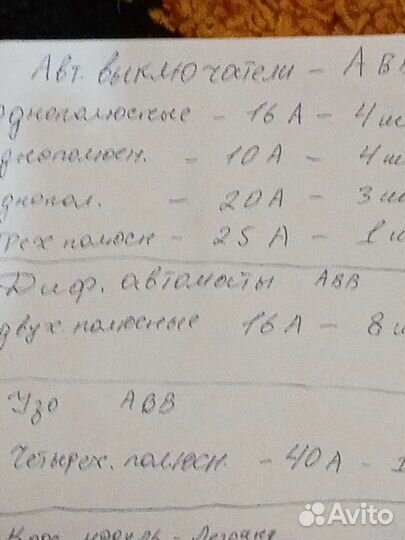 Авт. выключатели - АВВ
Однополюсные - 16 А - 4 ш
днополюсн. - 10 А - 4 ш
днопол. - 20 А - 3 ш
трех полюсн - 25 А - 1 ш
Диф. автоматы АВВ
двух. полюсные 16 А - 8 ш
Узо АВВ
Четырех. полюсн. - 40 А - 1
модуль -
Avito